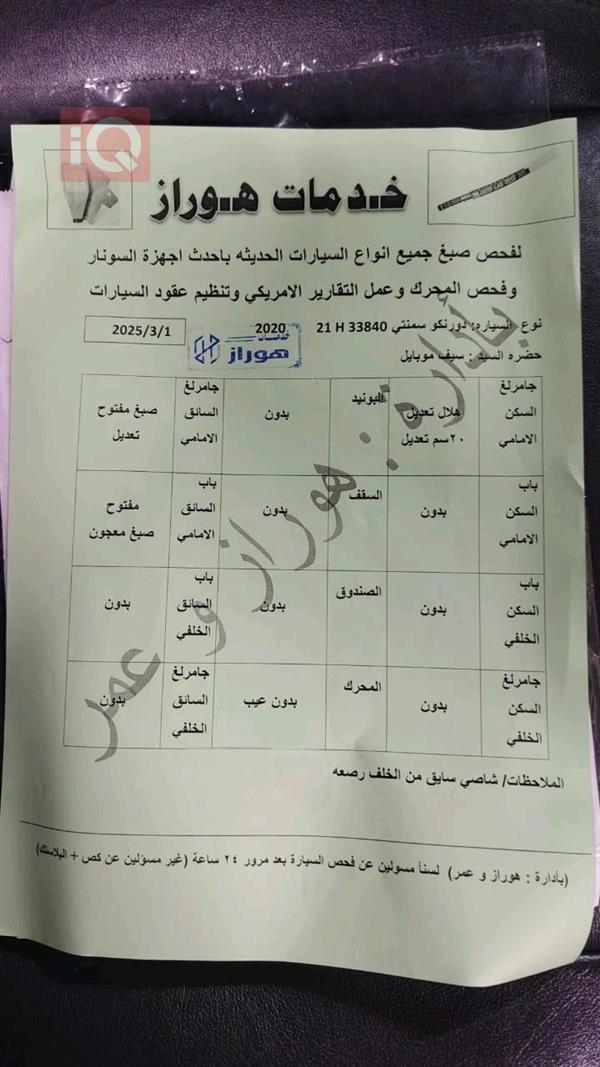 iQ
خدمات هوراز
لفحص صبغ جميع انواع السيارات الحديثه باحدث اجهزة السونار
وفحص المحرك وعمل التقارير الامريكي وتنظيم عقود السيارات
نوع السياره: دورنكو سمنتي 33840 H 21 2020 2025/3/1
خدمات هوراز
حضره السيد : سيف موبايل
جامرلغ السكن الامامي
هلال تعديل ٢٠سم تعديل
البونيد
بدون
جامرلغ السائق الامامي
صبغ مفتوح تعديل
باب السكن الامامي
بدون
السقف
بدون
باب السائق الامامي
مفتوح صبغ معجون
باب السكن الخلفي
بدون
الصندوق
بدون
باب السائق الخلفي
بدون
جامرلغ السكن الخلفي
بدون
المحرك
بدون عيب
جامرلغ السائق الخلفي
بدون
بأدارة : هوراز و عمر
الملاحظات/ شاصي سايق من الخلف رصعه
(بأدارة : هوراز و عمر) لسنأ مسولين عن فحص السيارة بعد مرور ٢٤ ساعة (غير مسؤلين عن كص + البلاستك)